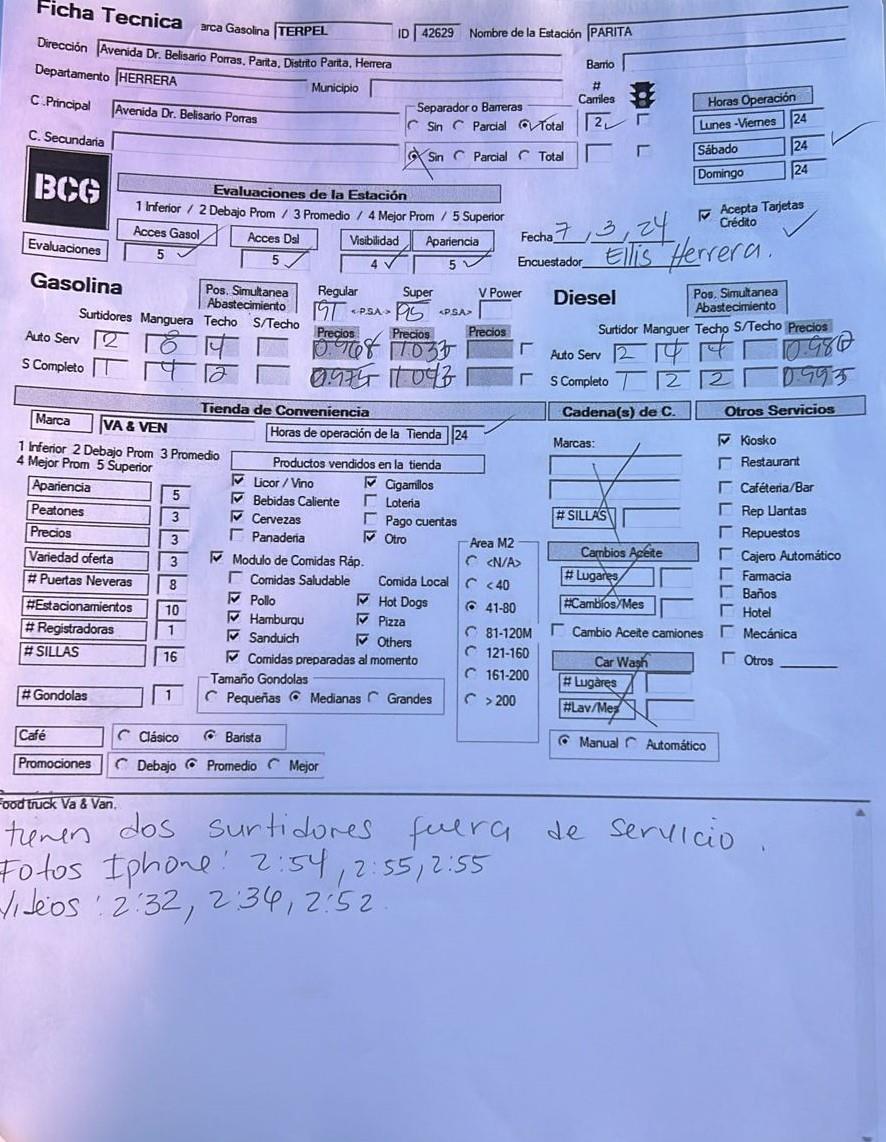 Ficha Tecnica arca Gasolina TERPEL ID 42629 Nombre de la Estación PARITA
Dirección Avenida Dr. Belisario Porras, Parita, Distrito Parita, Herrera Barrio
Departamento HERRERA Municipio
C .Principal Avenida Dr. Belisario Porras Separador o Barreras # Carriles Horas Operación
Sin Parcial Total 2 Lunes -Viernes 24
C. Secundaria Sin Parcial Total Sábado 24
Domingo 24
BCG
Evaluaciones de la Estación
1 Inferior / 2 Debajo Prom / 3 Promedio / 4 Mejor Prom / 5 Superior
Acepta Tarjetas Crédito
Evaluaciones Acces Gasol 5 Acces Dsl 5 Visibilidad 4 Apariencia 5
Fecha 7, 3, 24
Encuestador Ellis Herrera.
Gasolina Pos. Simultanea Abastecimiento Regular Super V Power
91 <-P.S.A.-> 95 <-P.S.A>
Surtidores Manguera Techo S/Techo Precios Precios Precios
Auto Serv 2 8 4 0.968 1.035
S Completo 1 4 2 0.975 1.043
Diesel Pos. Simultanea Abastecimiento
Surtidor Manguer Techo S/Techo Precios
Auto Serv 2 4 4
S Completo 1 2 2 0.993
Tienda de Conveniencia Cadena(s) de C. Otros Servicios
Marca VA & VEN Horas de operación de la Tienda 24
1 Inferior 2 Debajo Prom 3 Promedio
4 Mejor Prom 5 Superior
Productos vendidos en la tienda
Apariencia 5
Peatones 3
Precios 3
Variedad oferta 3
# Puertas Neveras 8
#Estacionamientos 10
# Registradoras 1
# SILLAS 16
# Gondolas 1
Licor / Vino Cigarrillos
Bebidas Caliente Loteria
Cervezas Pago cuentas
Panaderia Otro
Modulo de Comidas Ráp.
Comidas Saludable Comida Local
Pollo Hot Dogs
Hamburqu Pizza
Sanduich Others
Comidas preparadas al momento
Tamaño Gondolas
Pequeñas Medianas Grandes
Area M2
<N/A>
< 40
41-80
81-120M
121-160
161-200
> 200
Marcas:
# SILLAS
Cambios Aceite
# Lugares
#Cambios/Mes
Cambio Aceite camiones
Car Wash
# Lugares
#Lav/Mes
Manual Automático
Kiosko
Restaurant
Caféteria/Bar
Rep Llantas
Repuestos
Cajero Automático
Farmacia
Baños
Hotel
Mecánica
Otros
Café Clásico Barista
Promociones Debajo Promedio Mejor
Food truck Va & Van.
tienen dos surtidores fuera de servicio.
Fotos Iphone: 2:54, 2:55, 2:55
Videos: 2:32, 2:34, 2:52